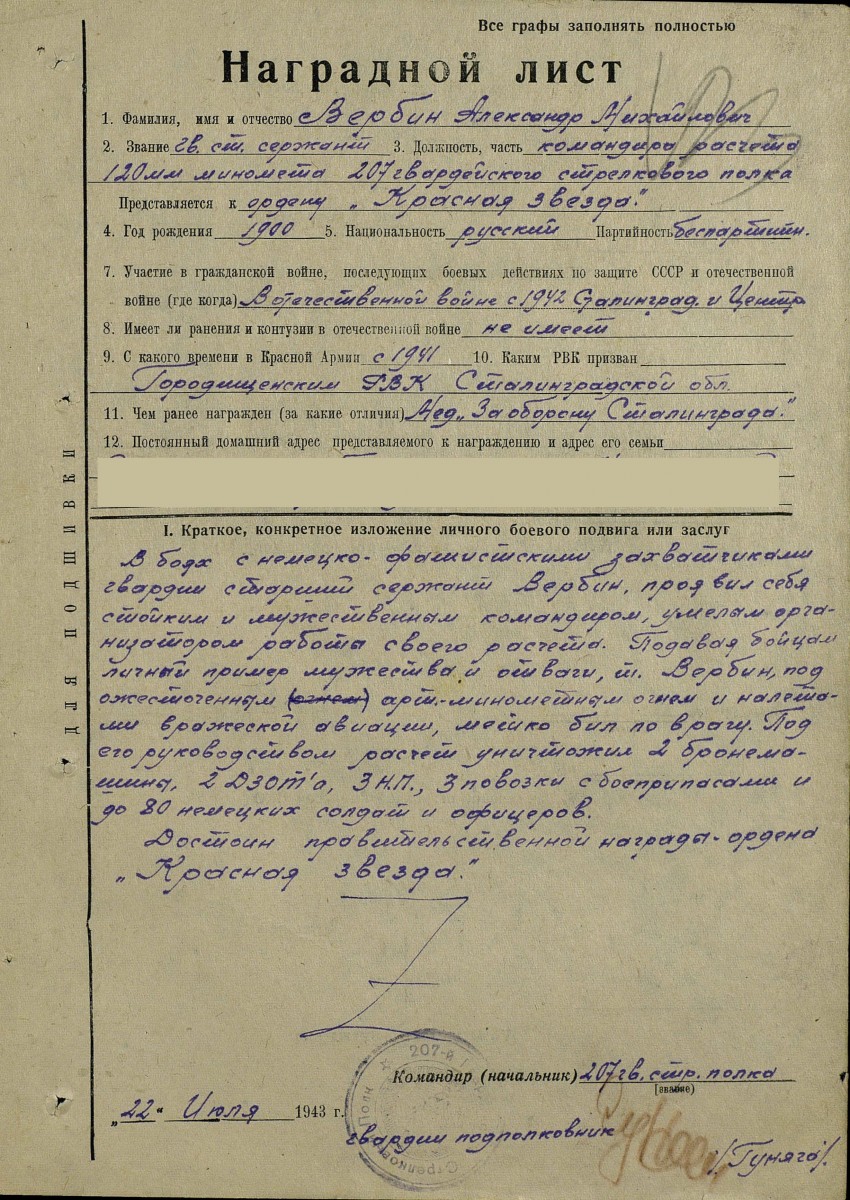 Все графы заполнять полностью
Наградной лист
1. Фамилия, имя и отчество Вербин Александр Михайлович
2. Звание гв. ст. сержант 3. Должность, часть командира расчета
120мм миномета 207 гвардейского стрелкового полка
Представляется к ордену „Красная звезда."
4. Год рождения 1900 5. Национальность русский Партийность беспартийн.
7. Участие в гражданской войне, последующих боевых действиях по защите СССР и отечественной
войне (где когда) В отечественной войне с 1942 Сталинград. и Центр
8. Имеет ли ранения и контузии в отечественной войне не имеет
9. С какого времени в Красной Армии с 1941 10. Каким РВК призван
Городищенским РВК Сталинградской обл.
11. Чем ранее награжден (за какие отличия) Мед „За оборону Сталинграда."
12. Постоянный домашний адрес представляемого к награждению и адрес его семьи
ДЛЯ ПОДШИВКИ
I. Краткое, конкретное изложение личного боевого подвига или заслуг
В боях с немецко-фашистскими захватчиками
гвардии старший сержант Вербин, проявил себя
стойким и мужественным командиром, умелым орга-
низатором работы своего расчета. Подавая бойцам
личный пример мужества и отваги, т. Вербин, под
ожесточенным (огнем) арт.-минометным огнем и налета-
ми вражеской авиации, метко бил по врагу. Под
его руководством расчет уничтожил 2 бронема-
шины, 2 ДЗОТ'а, 3 Н.П., 3 повозки с боеприпасами и
до 80 немецких солдат и офицеров.
Достоин правительственной награды - ордена
„Красная звезда."
207-й
Стрелковый Полк
Командир (начальник) 207 гв. стр. полка
(звание)
„22" Июля 1943 г.
гвардии подполковник
/Гуняга/.